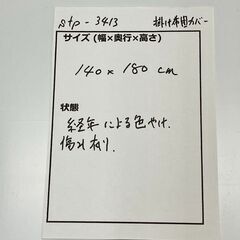 stp-3413 掛け布団カバー
サイズ(幅×奥行×高さ)
140 x 180 cm
状態
経年による色やけ.
傷み有り.